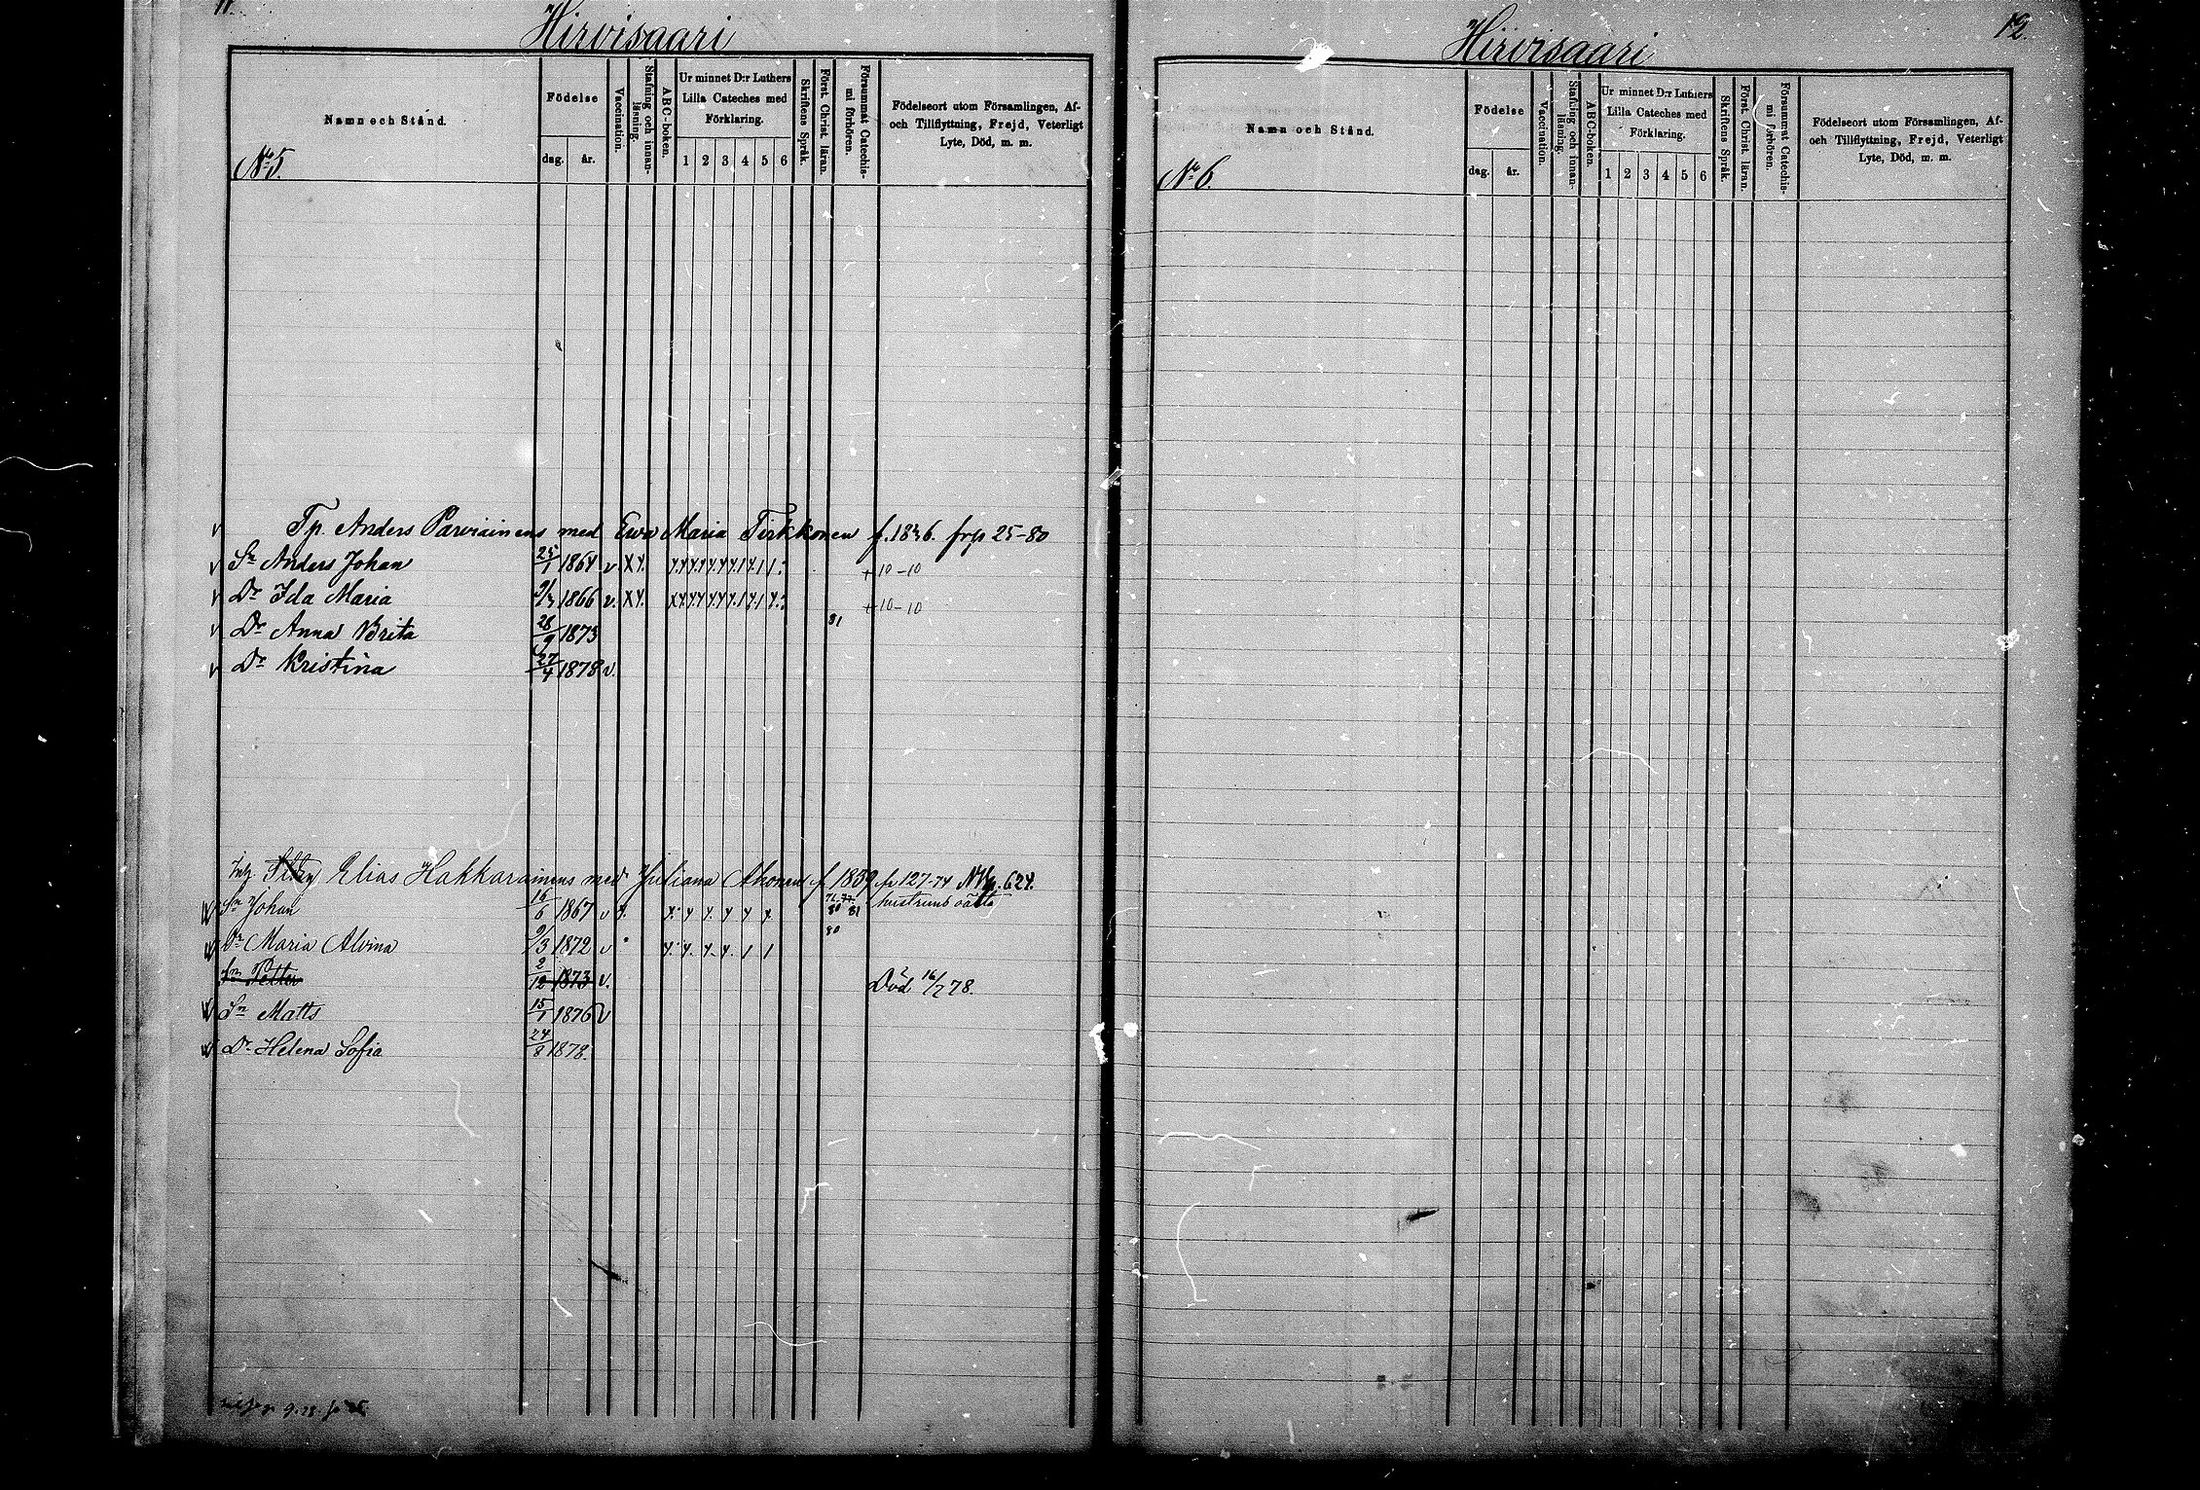 11
Hirvisaari
Namn och Stånd.
Födelse
dag.
år.
Vaccination.
Stafning och innan-
läsning.
ABC-boken.
Ur minnet D:r Luthers
Lilla Cateches med
Förklaring.
1 2 3 4 5 6
Skriftens Språk.
Först. Christ. läran.
Försummat Catechis-
mi förhören.
Födelseort utom Församlingen, Af-
och Tillflyttning, Frejd, Veterligt
Lyte, Död, m. m.
No 5.
Tp. Anders Parviainens med Ewa Maria Tirkkonen f. 1836. frp 25-80
Sn Anders Johan 25/1 1864 v. +10-10
Dr Ida Maria 9/3 1866 v. +10-10
Dr Anna Brita 28/9 1873 81
Dr Kristina 27/4 1878 v.
Elias Hakkarainens med Juliana Ahonen f. 1839 fr. 127-74 p. 624.
Sn Johan 16/6 1867 v 80 81 hustruns oäkta
Dr Maria Alvina 9/3 1872 v 80
Sn Petter 2/12 1873 v. Död 16/2 78.
Sn Matts 15/1 1876 v
Dr Helena Sofia 24/8 1878.
Hirvisaari
12.
Namn och Stånd.
Födelse
dag.
år.
Vaccination.
Stafning och innan-
läsning.
ABC-boken.
Ur minnet D:r Luthers
Lilla Cateches med
Förklaring.
1 2 3 4 5 6
Skriftens Språk.
Först. Christ. läran.
Försummat Catechis-
mi förhören.
Födelseort utom Församlingen, Af-
och Tillflyttning, Frejd, Veterligt
Lyte, Död, m. m.
No 6.